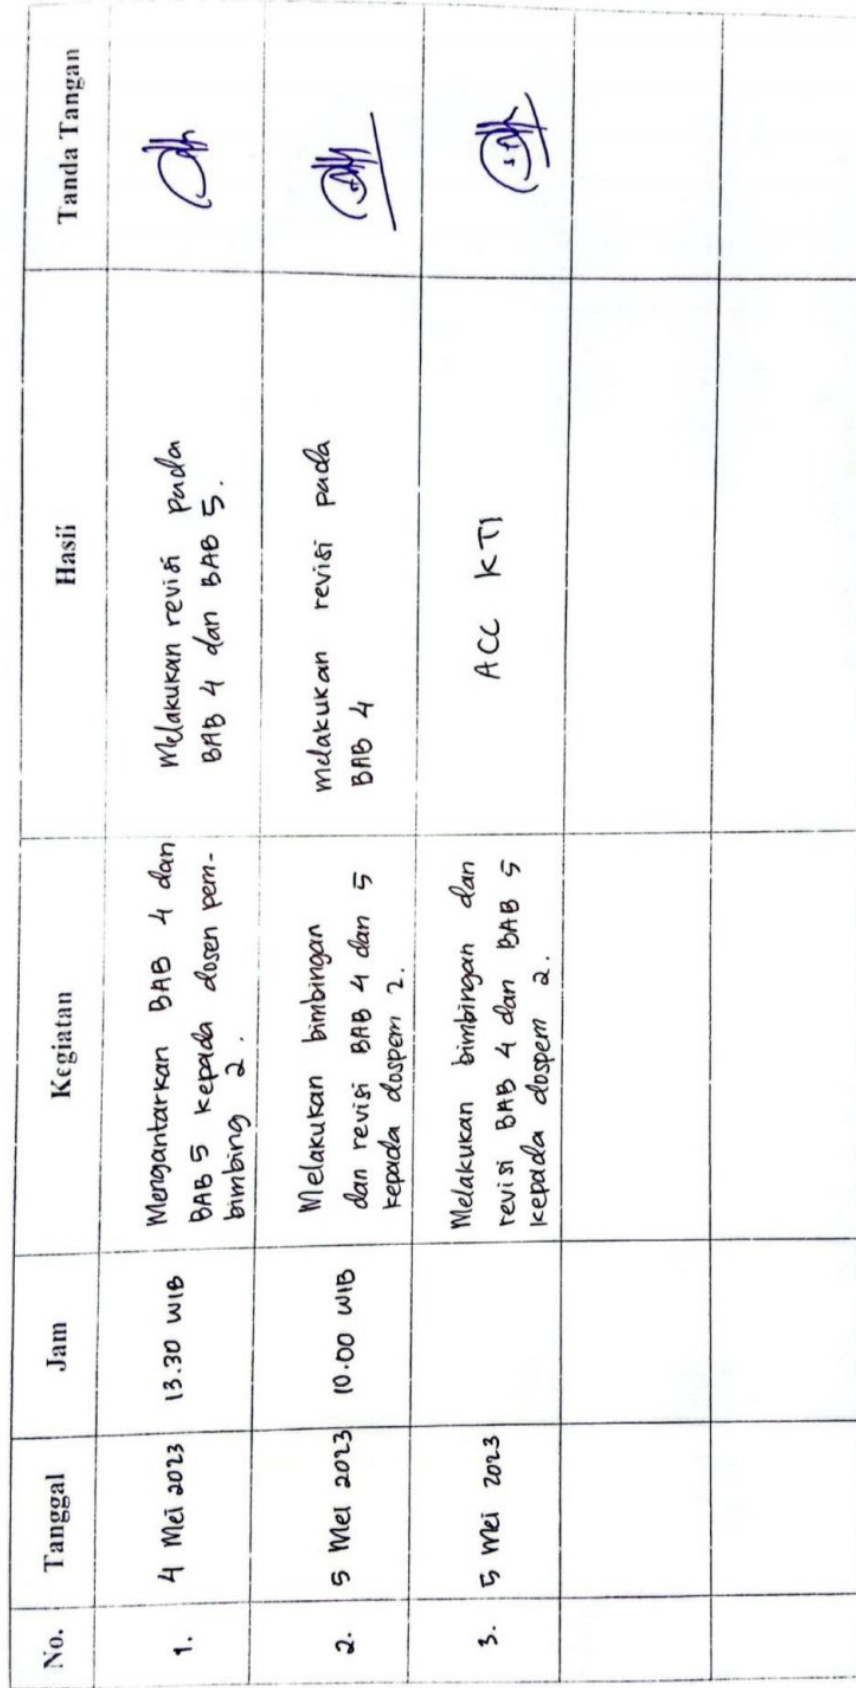 No. Tanggal Jam Kegiatan Hasil Tanda Tangan
1. 4 Mei 2023 13.30 WIB
Mengantarkan BAB 4 dan
BAB 5 kepada dosen pem-
bimbing 2.
Melakukan revisi pada
BAB 4 dan BAB 5.
2. 5 Mei 2023 10.00 WIB
Melakukan bimbingan
dan revisi BAB 4 dan 5
kepada dospem 2.
melakukan revisi pada
BAB 4
3. 5 Mei 2023
Melakukan bimbingan dan
revisi BAB 4 dan BAB 5
kepada dospem 2.
ACC KTI